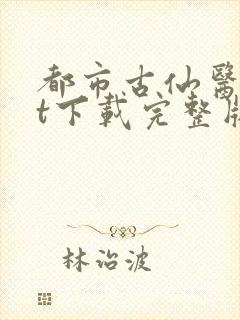 都市古仙醫
t下載完整版
林治波